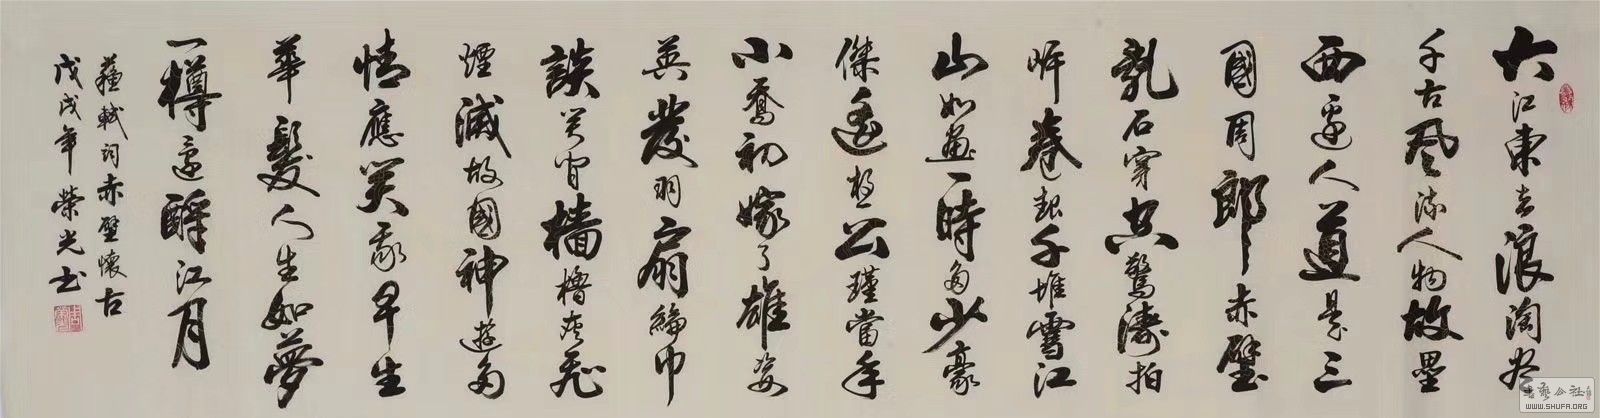 大江東去浪淘盡
千古風流人物故壘
西邊人道是三
國周郎赤壁
亂石穿空驚濤拍
岸卷起千堆雪江
山如畫一時多少豪
傑遙想公瑾當年
小喬初嫁了雄姿
英發羽扇綸巾
談笑間檣櫓灰飛
煙滅故國神遊多
情應笑我早生
華髮人生如夢
一樽還酹江月
蘇軾詞赤壁懷古
戊戌年榮光书
書藝公社
WWW.SHUFA.ORG